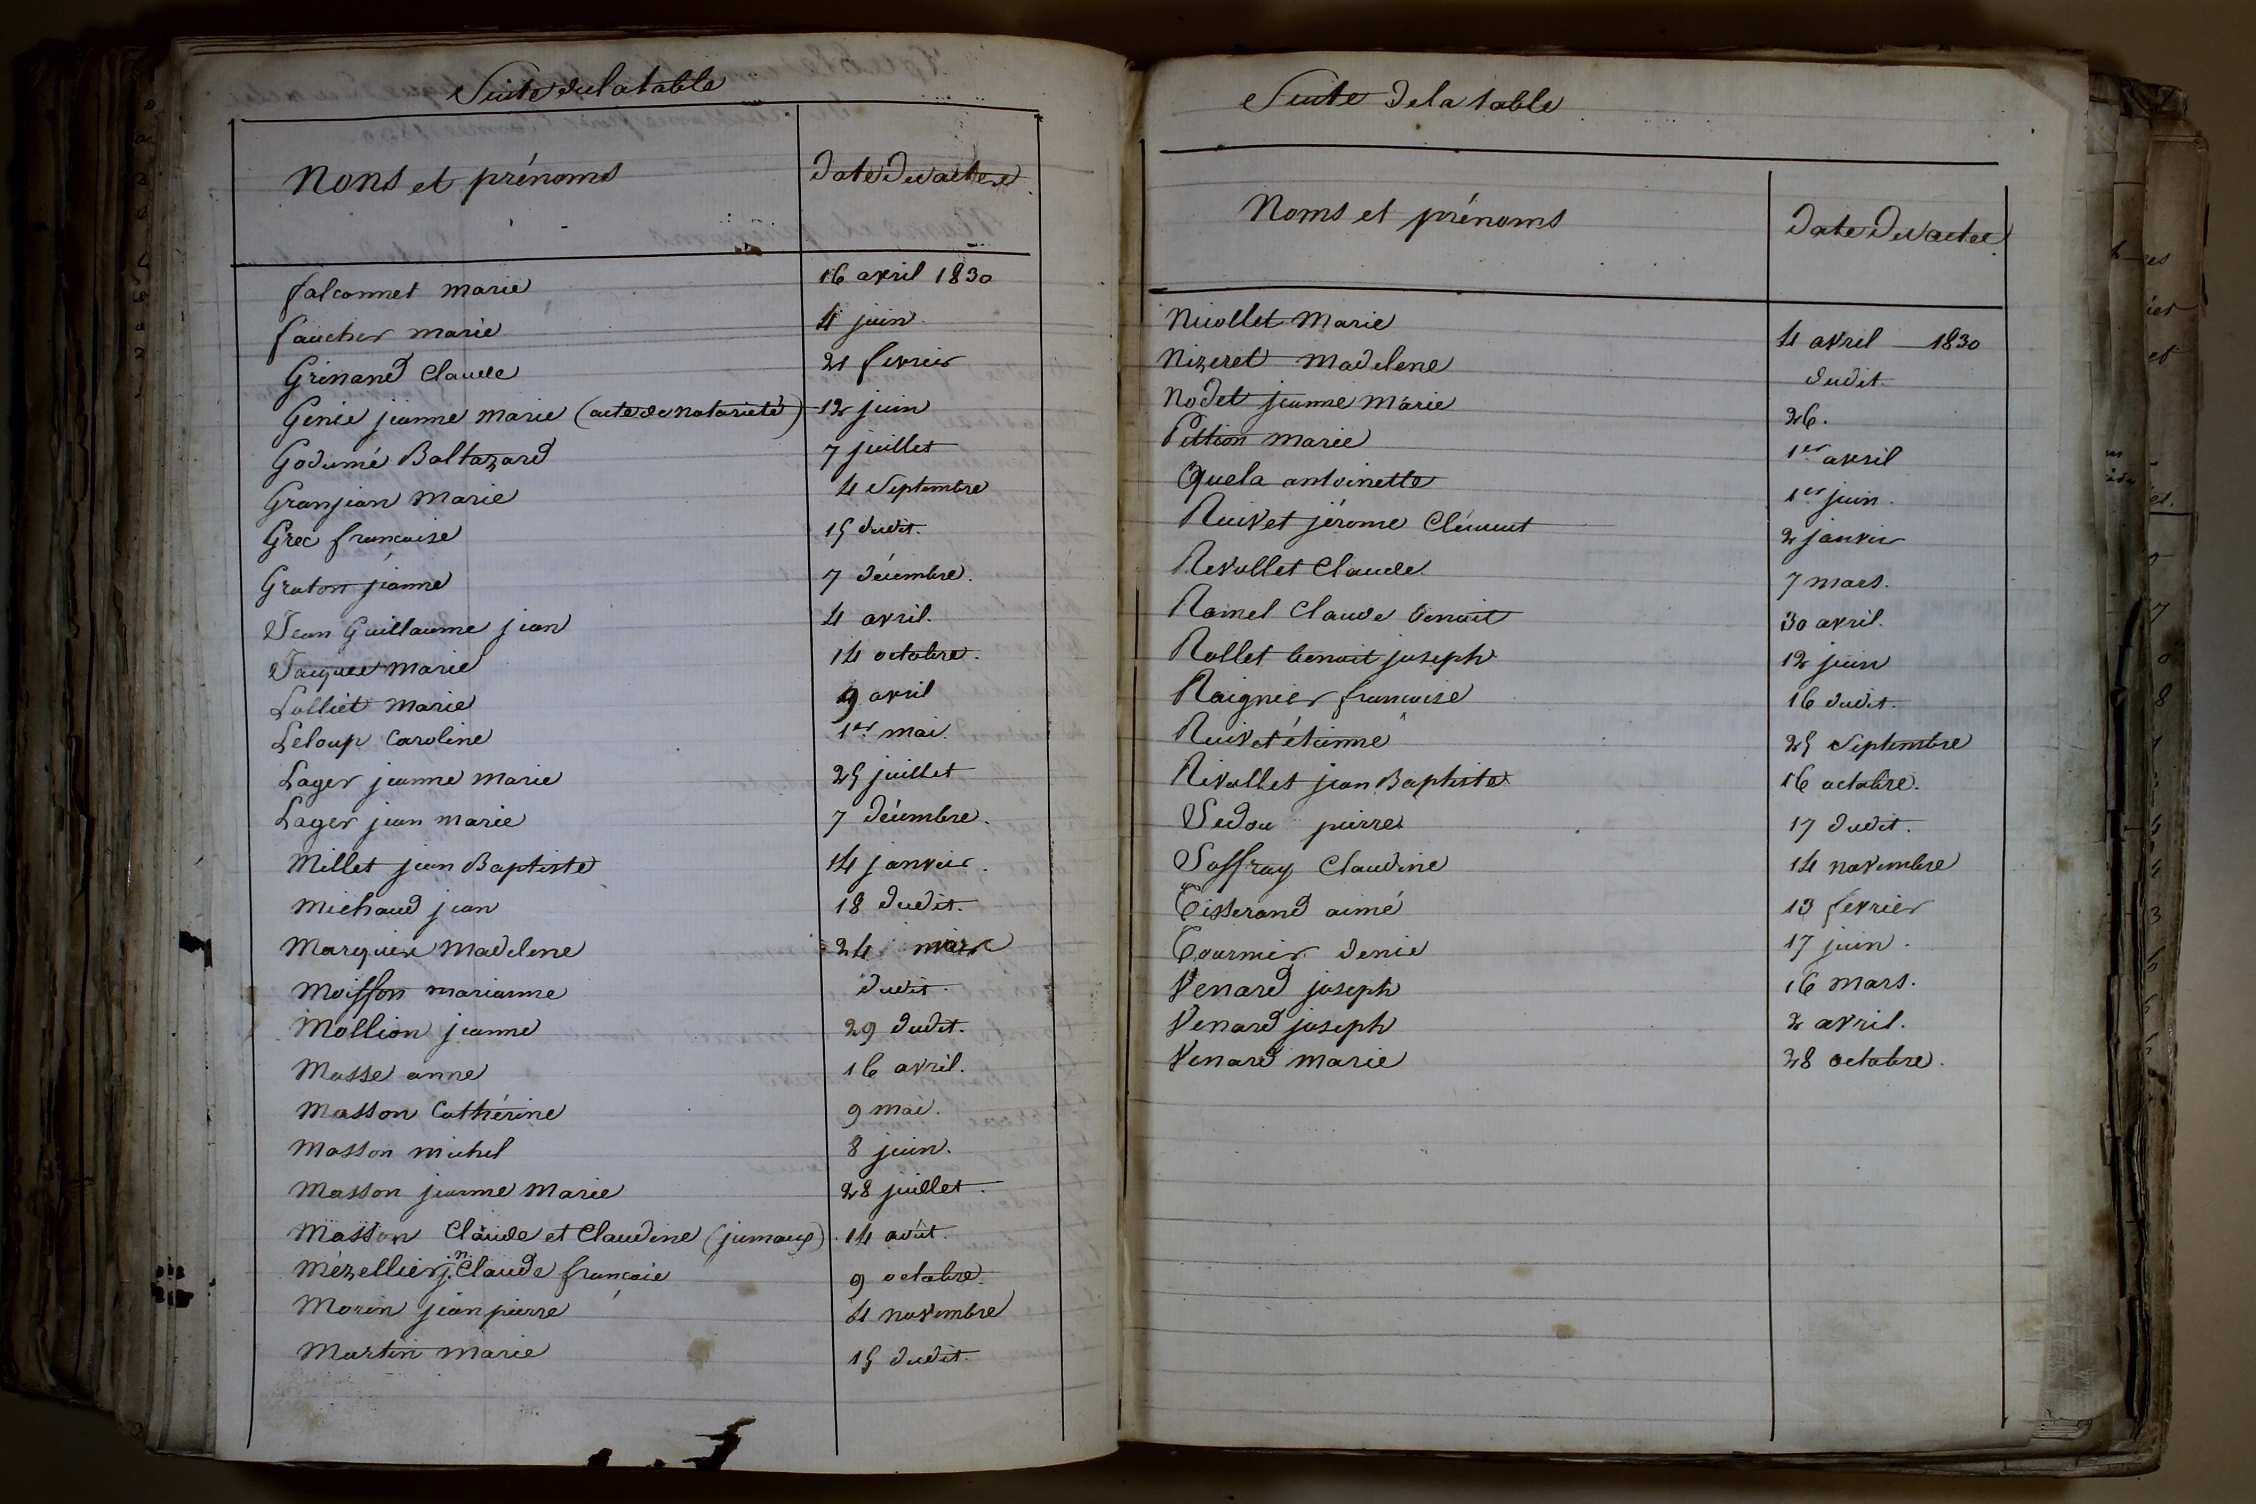 Suite de la table
Noms et prénoms date de l'acte
falconnet marie 16 avril 1830
faucher marie 4 juin
Grinand Claude 21 fevrier
Genie jeanne marie (acte de notariété) 12 juin
Godumé Baltazard 7 juillet
Granjean Marie 4 Septembre
Grec francoise 15 dudit.
Graton jeanne 7 décembre.
Jean Guillaume jean 4 avril.
Jaques marie 14 octobre.
Lolliet Marie 9 avril
Leloup Caroline 1er mai.
Lager jeanne Marie 25 juillet
Lager jean marie 7 décembre.
Millet jean Baptiste 14 janvier.
Michaud jean 18 dudit.
Marquis Madelene 24 mars
Moisson marianne dudit.
Mollion jeanne 29 dudit.
Masse anne 16 avril.
Masson Cathérine 9 mai.
Masson michel 8 juin.
Masson jeanne Marie 28 juillet.
Masson Claude et Claudine (jumaux) 14 août.
Mézellier j.n Claude françois 9 octobre.
Morin jean pierre 4 novembre
Martin marie 15 dudit.
Suite de la table
Noms et prénoms date de l'acte
Nicollet Marie 4 avril 1830
Nizeret Madelene dudit.
Nodet jeanne Marie 26.
Pittion Marie 1er avril
Quela antoinette 1er juin.
Ruivet jérome Clément 2 janvier
Revollet Claude 7 mars.
Ramel Claude benoit 30 avril.
Rollet benoit joseph 12 juin
Raignier francoise 16 dudit.
Ruivet étienne 25 Septembre
Rivollet jean Baptiste 16 octobre.
Sedou pierre 17 dudit.
Soffray Claudine 14 novembre
Tisserand aimé 13 fevrier
Tournier denie 17 juin.
Venard joseph 16 mars.
Venard joseph 2 avril.
Venard marie 28 octobre.